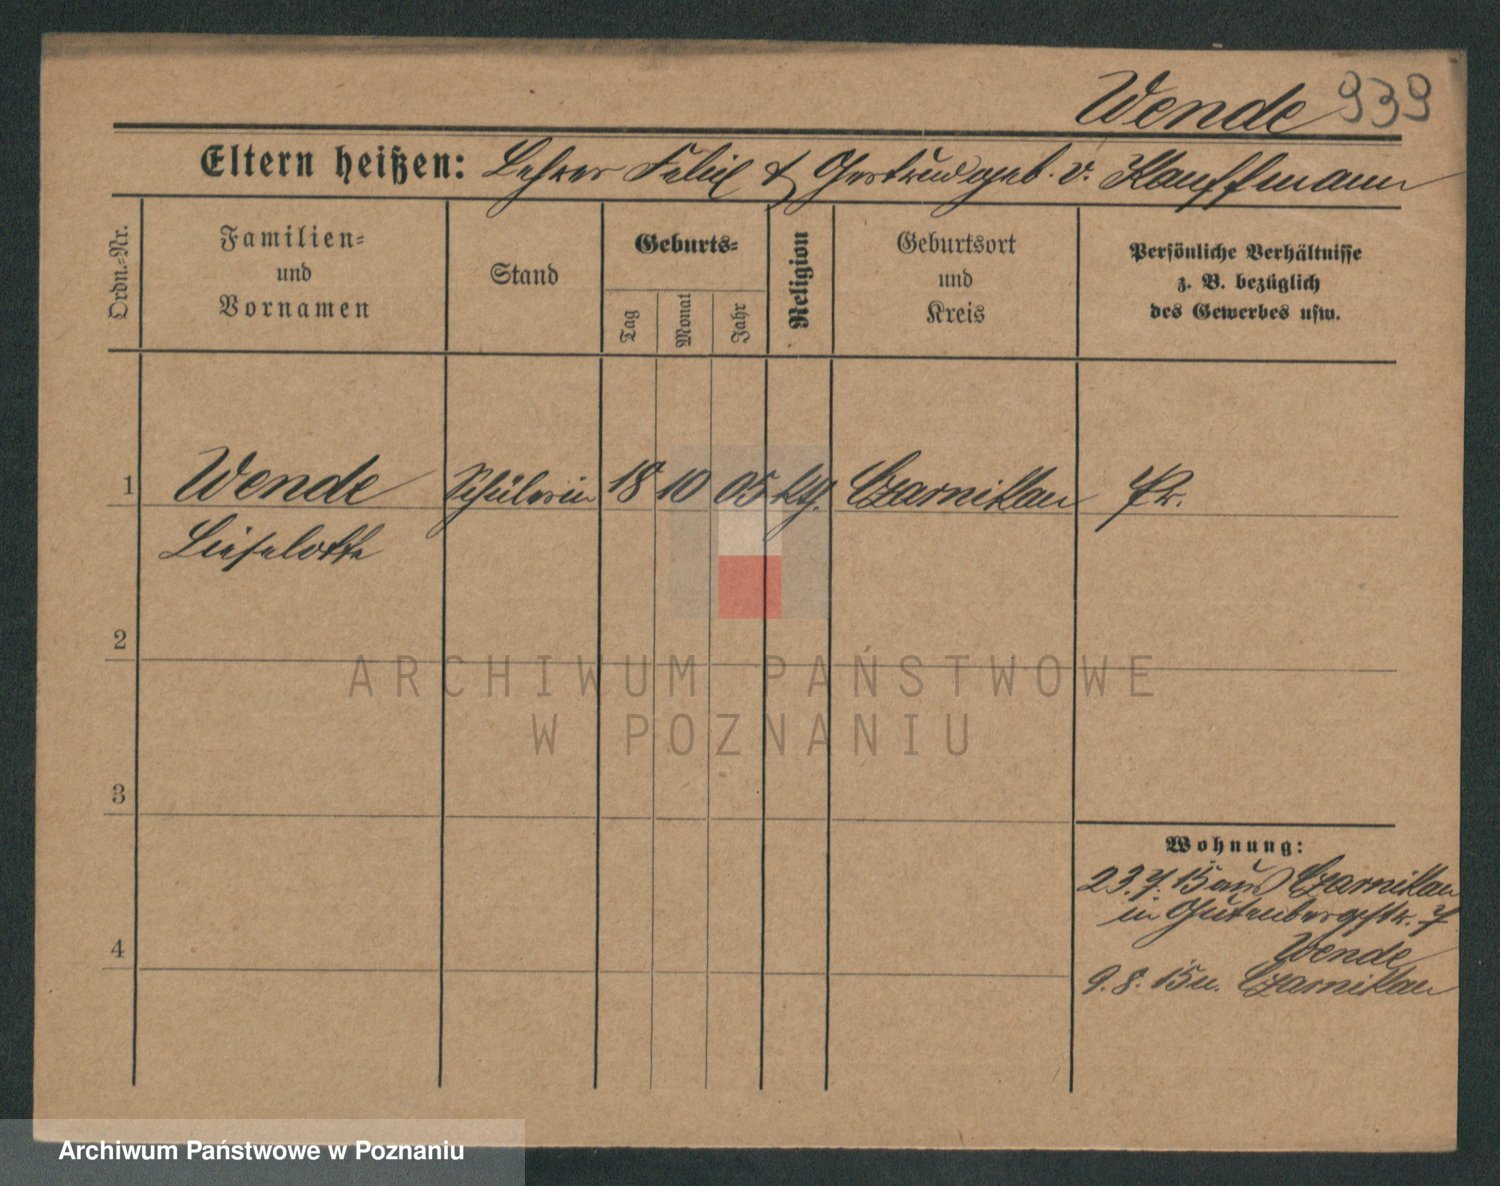 Wende 939
Eltern heißen: Lehrer Felix & Gertrud geb. v. Kauffmann
Ordn.-Nr.
Familien-
und
Vornamen
Stand
Geburts-
Tag
Monat
Jahr
Religion
Geburtsort
und
Kreis
Persönliche Verhältnisse
z. B. bezüglich
des Gewerbes usw.
1 Wende Schülerin 18 10 05 kth. Czarnikau Pr.
Lieselotte
2
3
4
ARCHIWUM PAŃSTWOWE
W POZNANIU
Wohnung:
23.7.15 aus Czarnikau
in Gutenbergstr. 7
Wende
9.8.15 n. Czarnikau
Archiwum Państwowe w Poznaniu